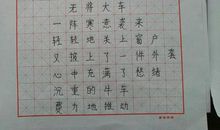 无将大车
一阵寒意袭来
轻轻地关上窗户
又披上了一件外套
心中充满了愁绪
沉重的牛车
费力地推动